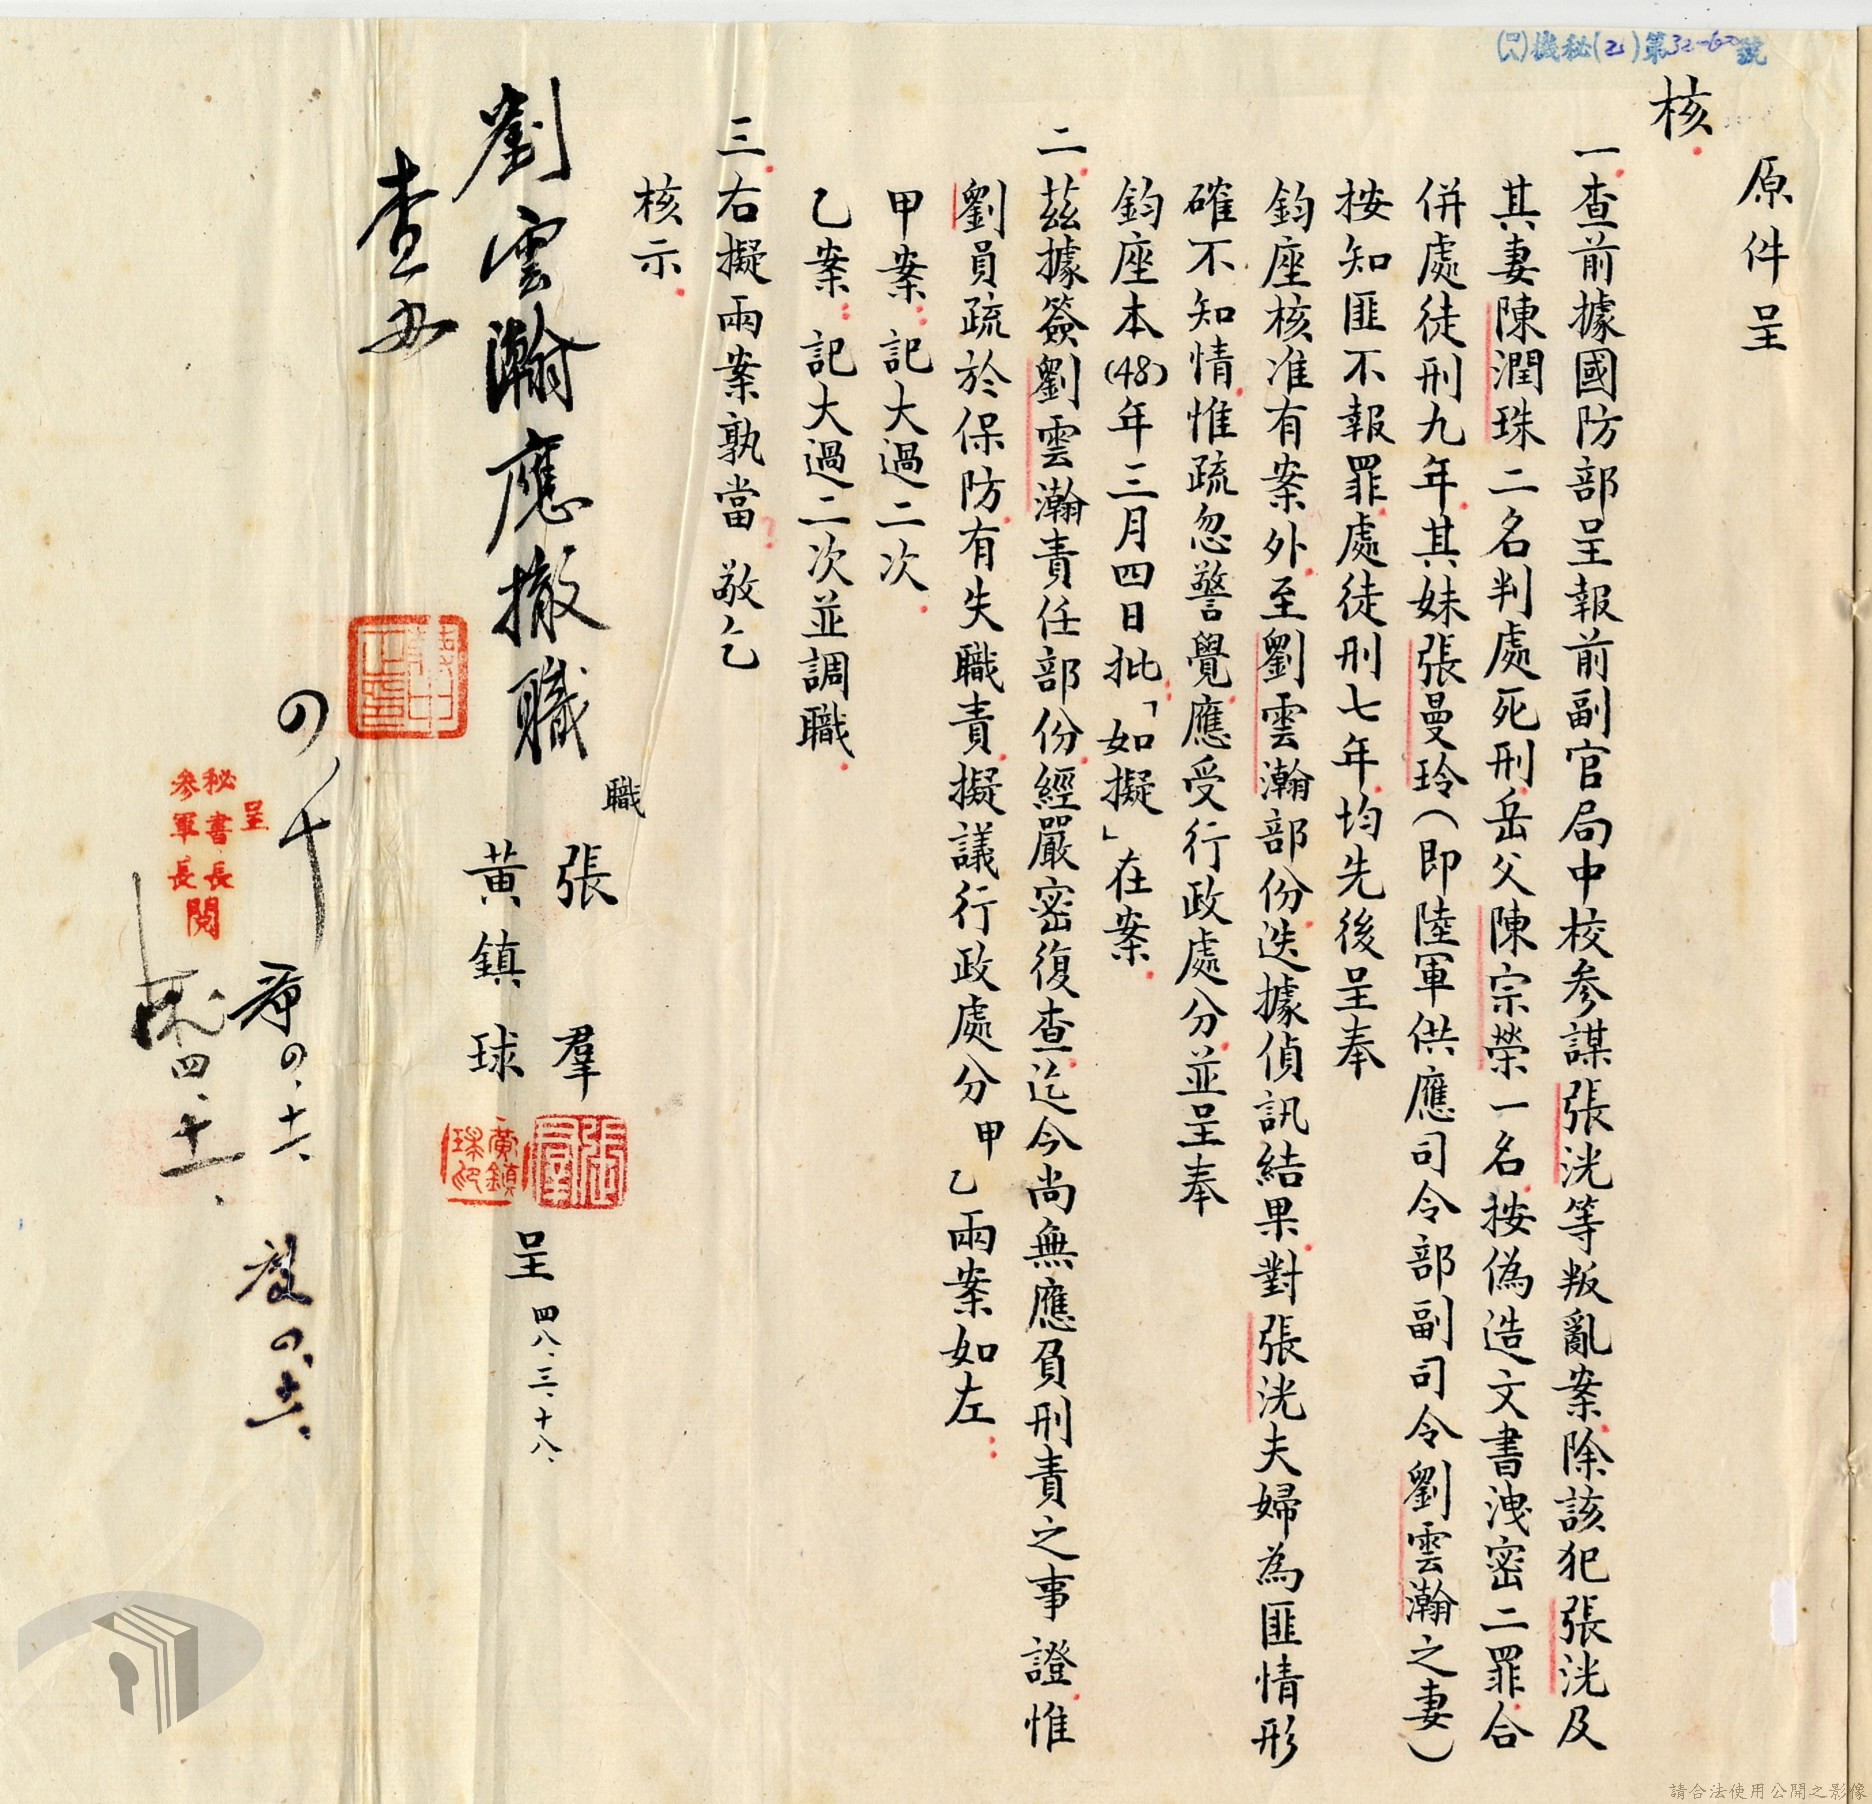 (四八)機秘(乙)第32-60號
原件呈
核
一查前據國防部呈報前副官局中校參謀張洸等叛亂案除該犯張洸及
其妻陳潤珠二名判處死刑岳父陳宗榮一名按偽造文書洩密二罪合
併處徒刑九年其妹張曼玲(即陸軍供應司令部副司令劉雲瀚之妻)
按知匪不報罪處徒刑七年均先後呈奉
鈞座核准有案外至劉雲瀚部份迭據偵訊結果對張洸夫婦為匪情形
確不知情惟疏忽警覺應受行政處分並呈奉
鈞座本(48)年三月四日批「如擬」在案
二茲據簽劉雲瀚責任部份經嚴密復查迄今尚無應負刑責之事證惟
劉員疏於保防有失職責擬議行政處分甲乙兩案如左:
甲案:記大過二次
乙案:記大過二次並調職
三右擬兩案孰當?敬乞
核示
職 張羣
黃鎮球
呈 四八、三、十八、
劉雲瀚應撤職
查办
蔣中正印
呈
秘書長
參軍長
閱
四、十一、
請合法使用公開之影像